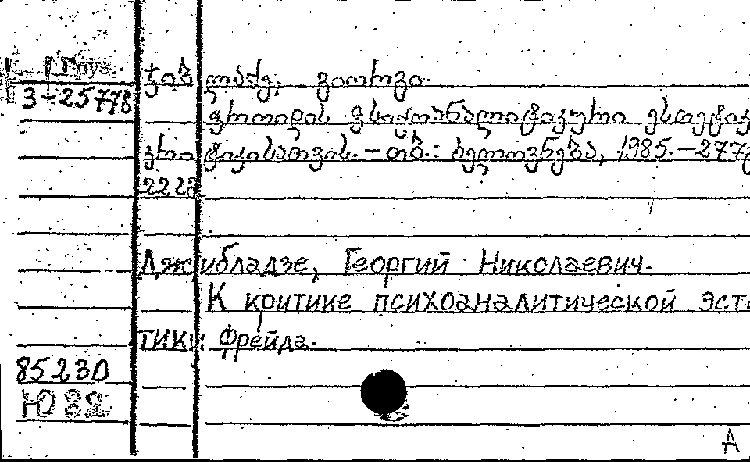 3-25778
ჯიბლაძე, გიორგი.
ფროიდის ფსიქოანალიტიკური ესთეტიკ
კრიტიკისათვის. – თბ.: ხელოვნება, 1985. – 277
222
Джибладзе, Георгий Николаевич.
К критике психоаналитической эсте
тики Фрейда.
85230
Ю 82
А